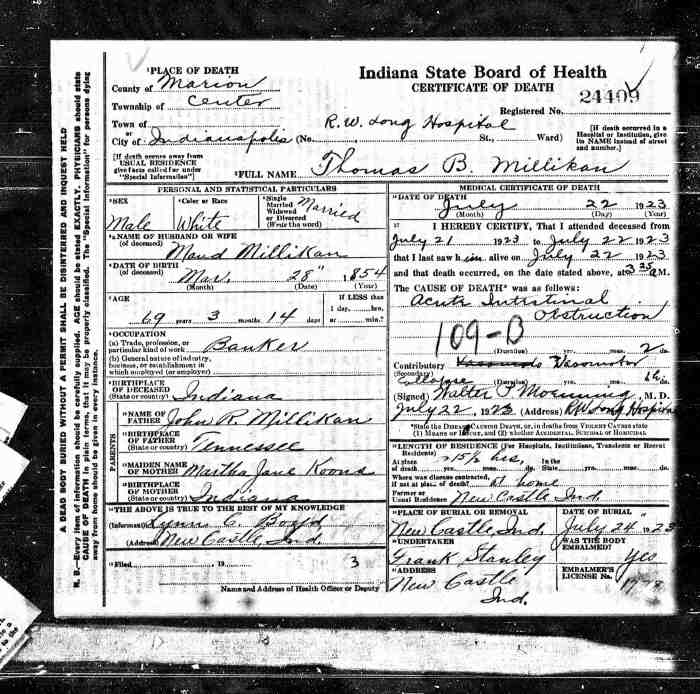 Indiana State Board of Health
CERTIFICATE OF DEATH
¹PLACE OF DEATH
County of Marion
Township of Center
Town of
or
City of Indianapolis
Registered No. 24409
R. W. Long Hospital
(No. St., Ward)
[If death occurred in a Hospital or Institution, give its NAME instead of street and number.]
[If death occurs away from USUAL RESIDENCE give facts called for under "Special Information"]
²FULL NAME Thomas B. Millikan
PERSONAL AND STATISTICAL PARTICULARS
³SEX Male
⁴Color or Race White
⁵Single Married Widowed or Divorced (Write the word) Married
NAME OF HUSBAND OR WIFE
(of deceased) Maud Millikan
⁶DATE OF BIRTH
(of deceased) Mar. 28" 1854
(Month) (Date) (Year)
⁷AGE
69 years 3 months 14 days
If LESS than 1 day, hrs. or min.?
⁸OCCUPATION
(a) Trade, profession, or particular kind of work Banker
(b) General nature of industry, business, or establishment in which employed (or employer)
⁹BIRTHPLACE OF DECEASED
(State or country) Indiana
PARENTS
NAME OF FATHER John R. Millikan
BIRTHPLACE OF FATHER
(State or country) Tennessee
MAIDEN NAME OF MOTHER Martha Jane Koons
BIRTHPLACE OF MOTHER
(State or country) Indiana
THE ABOVE IS TRUE TO THE BEST OF MY KNOWLEDGE
(Informant) C. Boyd
(Address) New Castle, Ind.
Filed , 19 3
Name and Address of Health Officer or Deputy
MEDICAL CERTIFICATE OF DEATH
DATE OF DEATH July 22 1923
(Month) (Day) (Year)
I HEREBY CERTIFY, That I attended deceased from
July 21 1923 to July 22 1923
that I last saw him alive on July 22 1923
and that death occurred, on the date stated above, at M.
The CAUSE OF DEATH* was as follows:
Acute Intestinal
Obstruction
109-B
(Duration) yrs. mos. 2 ds.
Contributory Vasomotor
(Secondary) Collapse
(Duration) yrs. mos. ds.
(Signed) Walter P. Morning, M. D.
July 22, 1923 (Address) RW Long Hospital
*State the DISEASE CAUSING DEATH, or, in deaths from VIOLENT CAUSES state (1) MEANS OF INJURY, and (2) whether ACCIDENTAL, SUICIDAL or HOMICIDAL
LENGTH OF RESIDENCE (For Hospitals, Institutions, Transients or Recent Residents)
At place of death yrs. mos. ds. In the State yrs. mos. ds.
15½ hrs.
Where was disease contracted, if not at place of death? at home
Former or Usual Residence New Castle Ind.
PLACE OF BURIAL OR REMOVAL
New Castle, Ind.
DATE OF BURIAL
July 24 1923
UNDERTAKER
Frank Stanley
WAS THE BODY EMBALMED? Yes
ADDRESS
New Castle
Ind.
EMBALMER'S LICENSE No.
A DEAD BODY BURIED WITHOUT A PERMIT SHALL BE DISINTERRED AND INQUEST HELD
N. B.—Every item of information should be carefully supplied. AGE should be stated EXACTLY. PHYSICIANS should state
CAUSE OF DEATH in plain terms, that it may be properly classified. The "Special Information" for persons dying
away from home should be given in every instance.